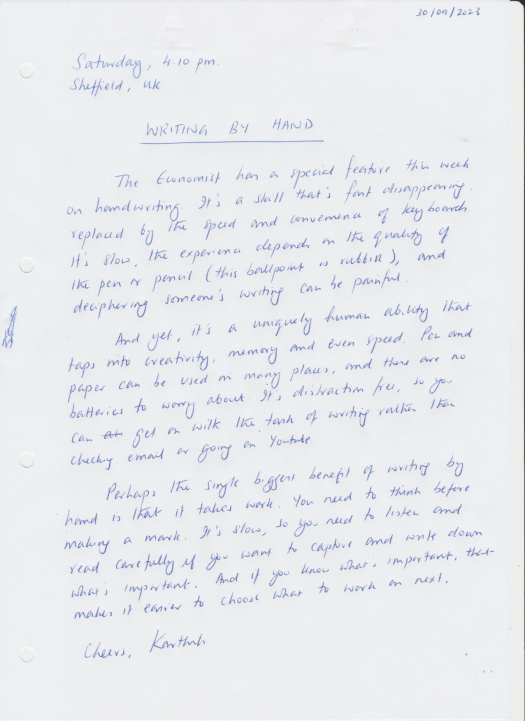 30/09/2023
Saturday, 4.10 pm.
Sheffield, UK
WRITING BY HAND
The Economist has a special feature this week
on handwriting. It's a skill that's fast disappearing,
replaced by the speed and convenience of keyboards.
It's slow, the experience depends on the quality of
the pen or pencil (this ballpoint is rubbish), and
deciphering someone's writing can be painful.
And yet, it's a uniquely human ability that
taps into creativity, memory and even speed. Pen and
paper can be used in many places, and there are no
batteries to worry about. It's distraction free, so you
can get on with the task of writing rather than
checking email or going on Youtube
Perhaps the single biggest benefit of writing by
hand is that it takes work. You need to think before
making a mark. It's slow, so you need to listen and
read carefully if you want to capture and write down
what's important. And if you know what's important, that
makes it easier to choose what to work on next.
Cheers, Karthik